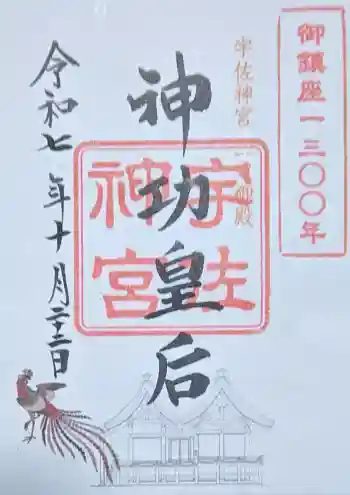 御鎮座一三〇〇年
宇佐神宮
御殿
神功皇后
宇佐
神宮
令和七年十月二十三日